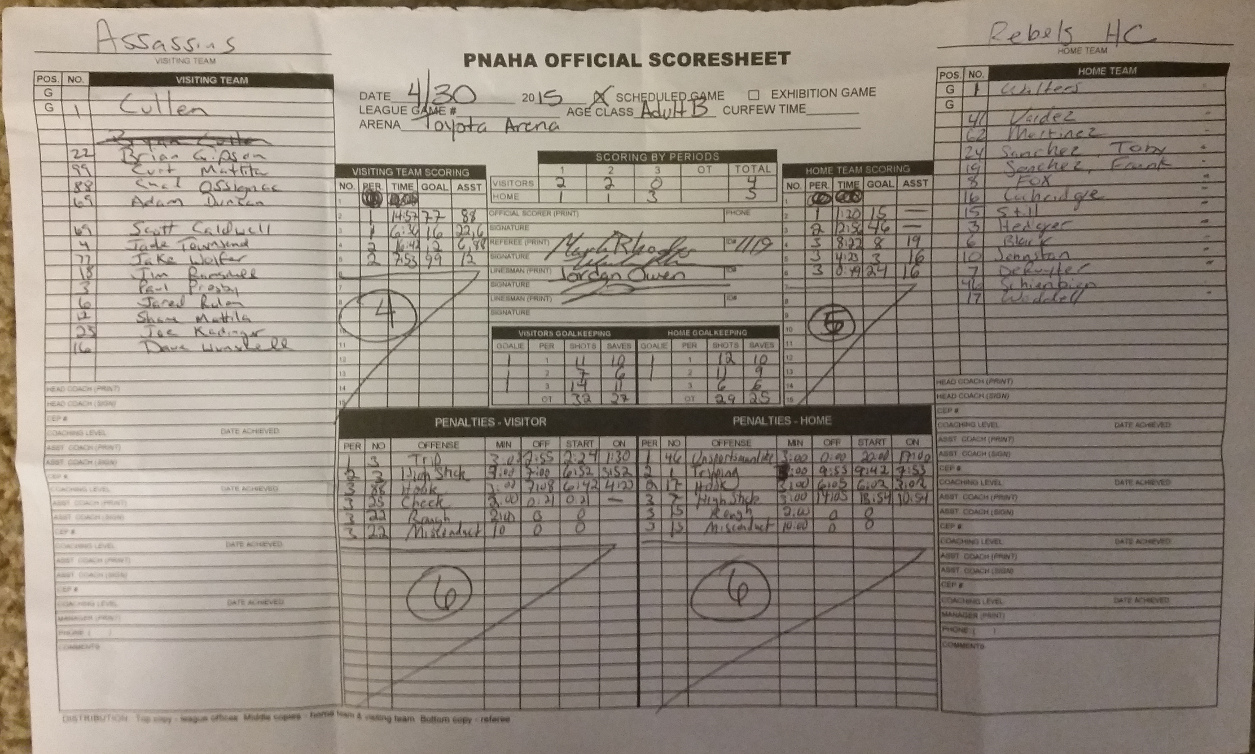 Assassins
VISITING TEAM
PNAHA OFFICIAL SCORESHEET
Rebels HC
HOME TEAM
DATE 4/30 2015 X SCHEDULED GAME EXHIBITION GAME
LEAGUE GAME # AGE CLASS Adult B CURFEW TIME
ARENA Toyota Arena
POS. NO. VISITING TEAM
G
G 1 Cullen
22 Brian Gipson
99 Curt Mattila
88
69 Adam Duncan
69 Scott Caldwell
4 Jade Townsend
77 Jake Wolfer
18 Jim Ramsdell
3 Paul Presby
6 Jared Rulon
12 Shane Mattila
25 Joe Kadinger
16 Dave
HEAD COACH (PRINT)
HEAD COACH (SIGN)
CEP #
COACHING LEVEL DATE ACHIEVED
ASST. COACH (PRINT)
ASST. COACH (SIGN)
CEP #
COACHING LEVEL DATE ACHIEVED
ASST. COACH (PRINT)
ASST. COACH (SIGN)
CEP #
COACHING LEVEL DATE ACHIEVED
ASST. COACH (PRINT)
ASST. COACH (SIGN)
CEP #
COACHING LEVEL DATE ACHIEVED
MANAGER (PRINT)
PHONE ( )
COMMENTS
VISITING TEAM SCORING
NO. PER TIME GOAL ASST
1
2 1 14:57 77 88
3 1 6:36 16 22,6
4 2 16:42 2 6,88
5 2 7:53 99 12
4
SCORING BY PERIODS
1 2 3 OT TOTAL
VISITORS 2 2 0 4
HOME 1 1 3 5
OFFICIAL SCORER (PRINT) PHONE
SIGNATURE
REFEREE (PRINT) ID# 1119
SIGNATURE
LINESMAN (PRINT) Jordan Owen ID#
SIGNATURE
LINESMAN (PRINT) ID#
SIGNATURE
VISITORS GOALKEEPING HOME GOALKEEPING
GOALIE PER SHOTS SAVES GOALIE PER SHOTS SAVES
1 1 11 10 1 1 12 10
1 2 7 6 1 2 11 9
3 14 11 3 6 6
OT 32 27 OT 29 25
HOME TEAM SCORING
NO. PER TIME GOAL ASST
1
2 1 1:20 15 —
3 2 12:56 46 —
4 3 8:22 8 19
5 3 4:23 3 16
6 3 0:49 24 16
5
POS. NO. HOME TEAM
G 1 Walters
G
41 Valdez
62 Martinez
24 Sanchez, Toby
19 Sanchez, Frank
8 FOX
16
15 Still
3 Hedger
6 Black
10 Johnston
7 DeRuyter
46
17 Waddell
HEAD COACH (PRINT)
HEAD COACH (SIGN)
CEP #
COACHING LEVEL DATE ACHIEVED
ASST. COACH (PRINT)
ASST. COACH (SIGN)
CEP #
COACHING LEVEL DATE ACHIEVED
ASST. COACH (PRINT)
ASST. COACH (SIGN)
CEP #
COACHING LEVEL DATE ACHIEVED
ASST. COACH (PRINT)
ASST. COACH (SIGN)
CEP #
COACHING LEVEL DATE ACHIEVED
MANAGER (PRINT)
PHONE ( )
COMMENTS
PENALTIES - VISITOR
PER NO OFFENSE MIN OFF START ON
1 3 Trip 2:24 1:30
2 High Stick 7:00 6:52 3:52
3 88 Hook 7:08 6:42 4:23
3 25 Check 2:00 0:21 0:21 —
3 22 Rough 2:00 0 0
3 22 Misconduct 10 0 0
6
PENALTIES - HOME
PER NO OFFENSE MIN OFF START ON
1 46 Unsportsmanlike 3:00 0:00 20:00 17:00
2 1 Tripping 9:53 9:42 7:53
2 17 Hook 6:05 6:02 3:02
3 7 High Stick 3:00 14:05 10:54
3 15 Rough 2:00 0 0
3 15 Misconduct 10:00 0 0
6
DISTRIBUTION: Top copy - league offices Middle copies - home team & visiting team Bottom copy - referee